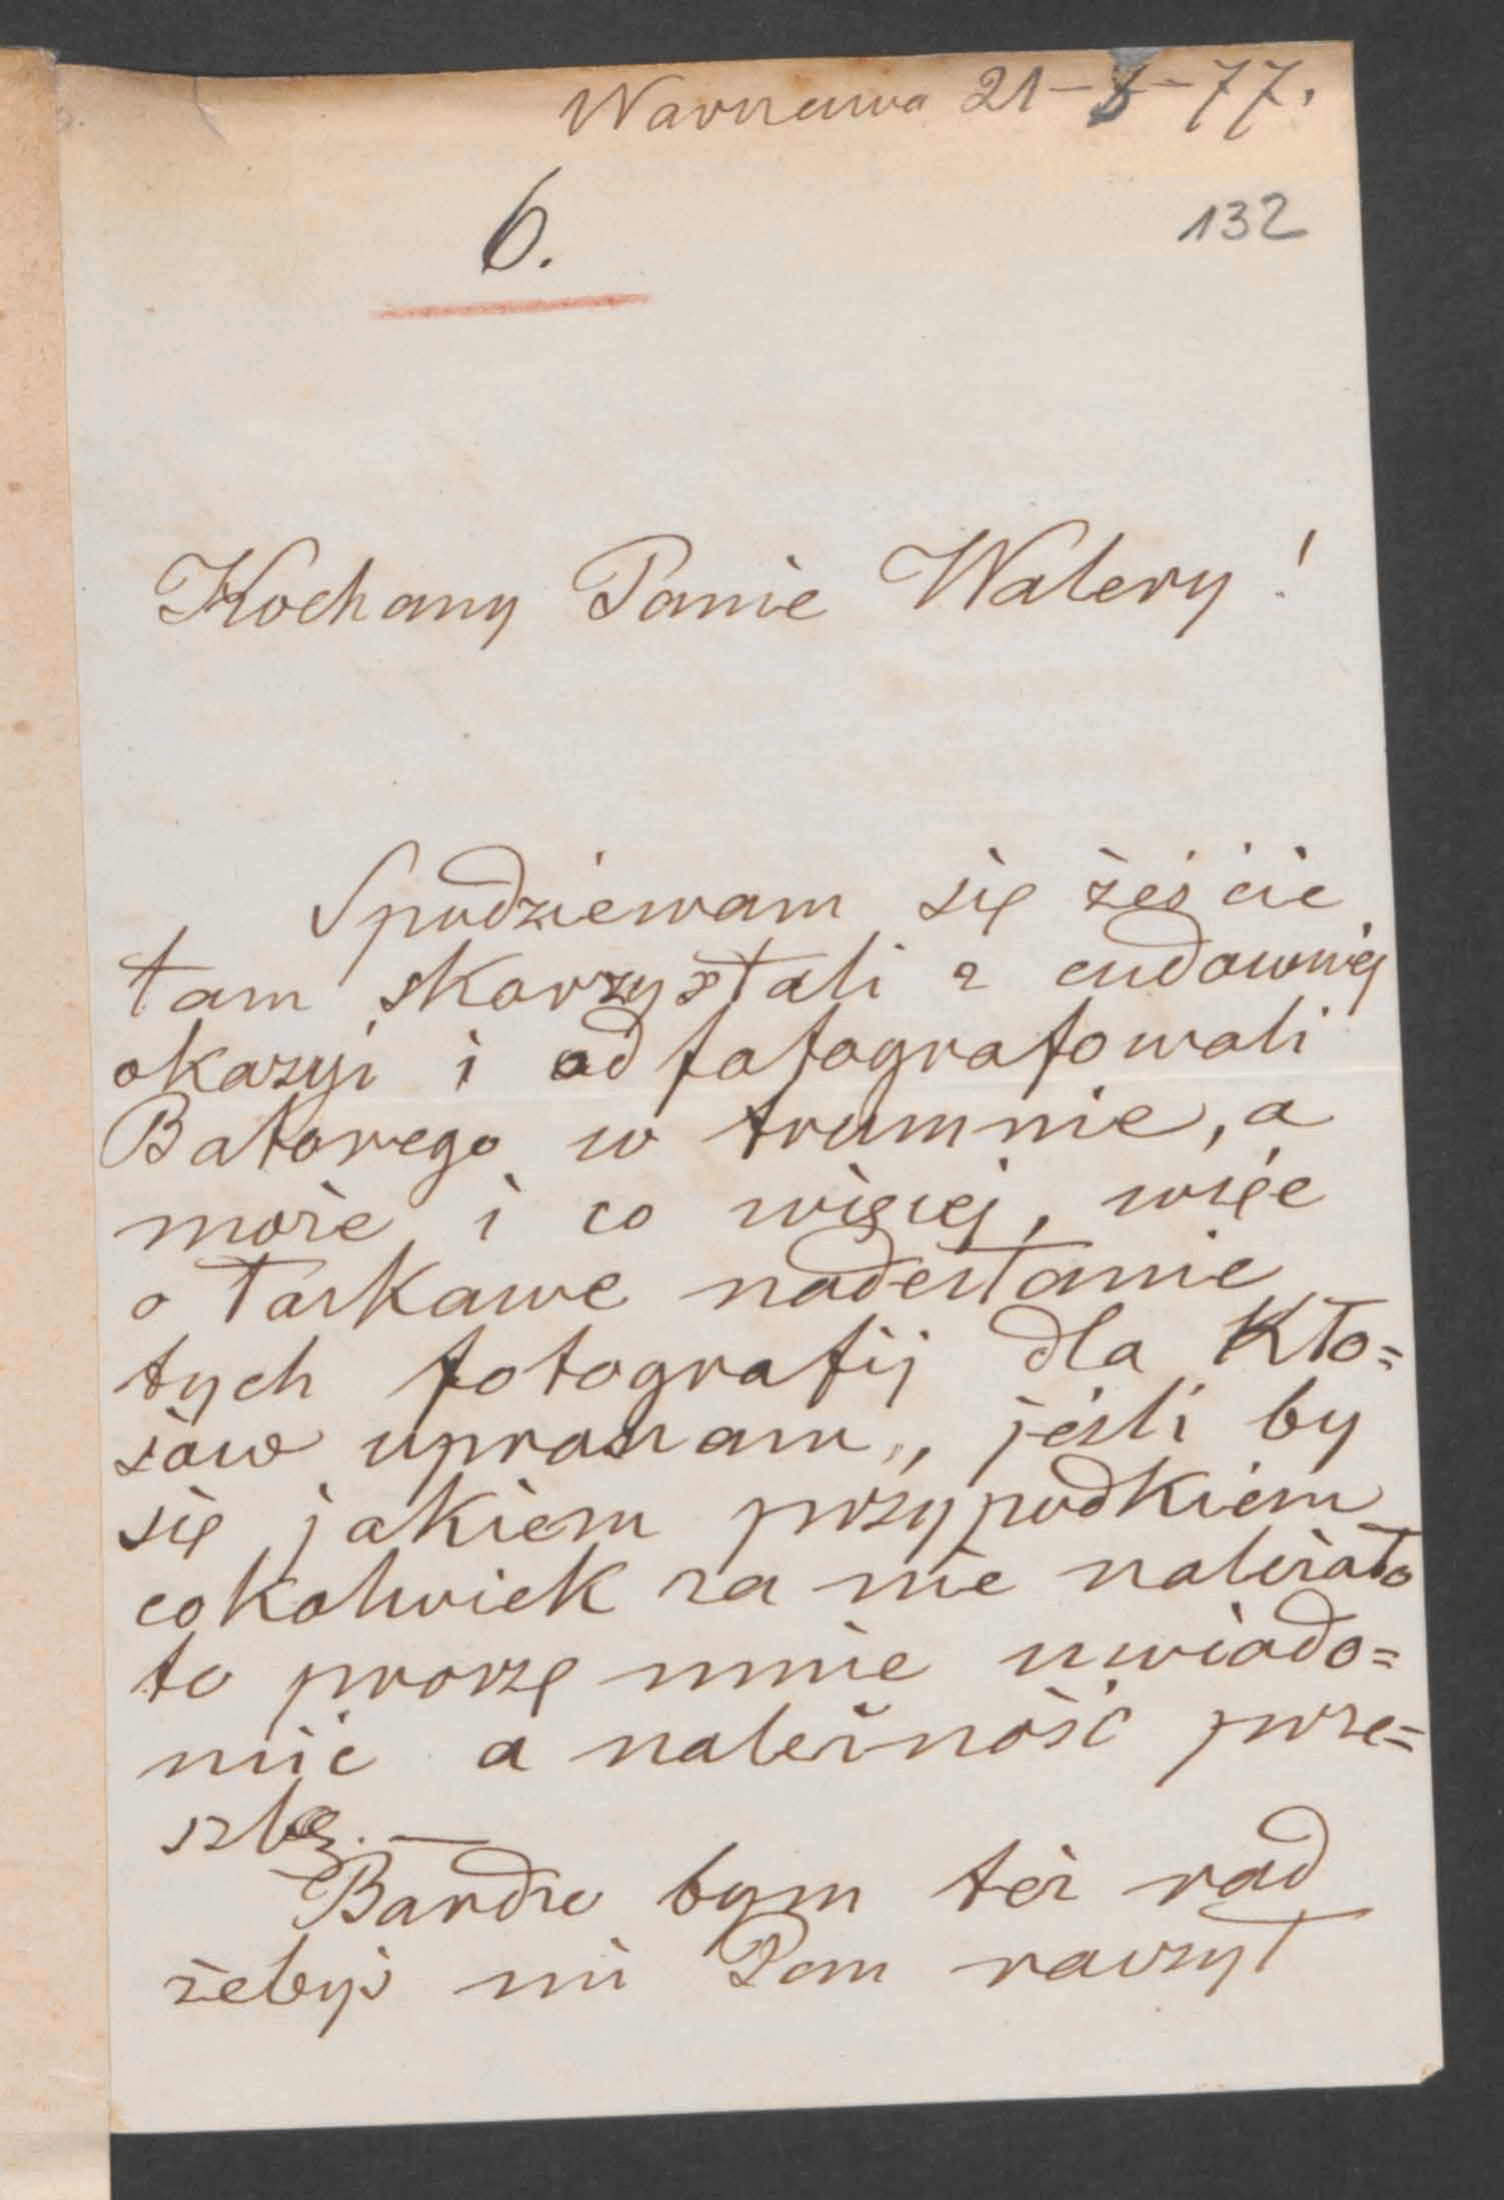 Warszawa 21-8-77.
132
6.
Kochany Panie Walery!
Spodziewam się żeście
tam skorzystali z cudownej
okazyi i odfotografowali
Batorego w trumnie, a
może i co więcej, więc
o łaskawe nadesłanie
tych fotografij dla Kło=
sów upraszam, jeśli by
się jakiem przypadkiem
cokolwiek za nie należało
to proszę mnie uwiado=
mić a należność prze=
szlę. —
Bardzo bym też rad
żebyś mi Pan raczył